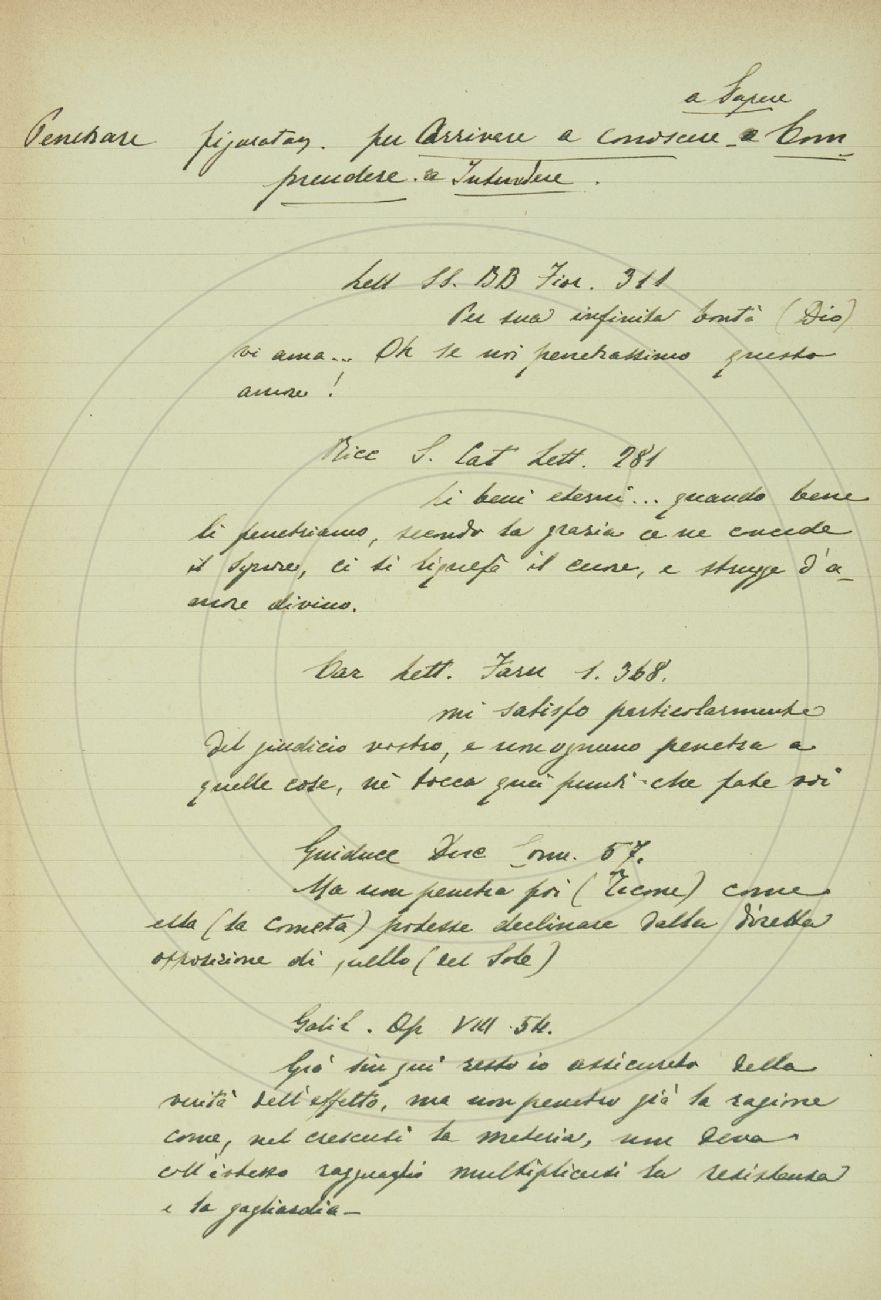 a Sapere
Penetrare figuratam. per Arrivare a conoscere - a Com
prendere. a Intendere.
Lett SS. BB Fior. 311
Per sua infinita bontà (Dio)
vi ama... Oh se noi penetrassimo questo
amore!
Ricc S. Cat Lett. 281
Li beni eterni... quando bene
li penetriamo, secondo la grazia ce ne concede
il Signore, ci si liquefà il cuore, e strugge d'a-
more divino.
Car Lett. Farn 1. 368.
mi satisfo particolarmente
del giudicio vostro, e non ognuno penetra a
quelle cose, nè tocca quei punti che fate voi
Guiducc Disc Com. 57.
Ma non penetra poi (Ticone) come
ella (la cometa) potesse declinare dalla diretta
opposizione di quello (del Sole)
Galil. Op VIII. 54.
Già sin qui resto io assicurato della
verità dell'effetto, ma non penetro già la ragione
come, nel crescersi la materia, non deva
coll'istesso ragguaglio multiplicarsi la resistenza
e la gagliardia -